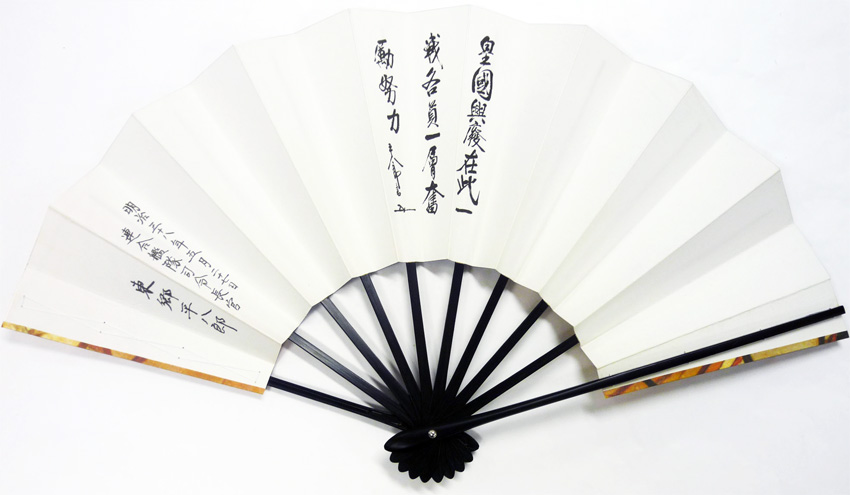 皇國興廢在此一
戦各員一層奮
勵努力
明治三十八年五月二十七日
連合艦隊司令長官
東郷平八郎